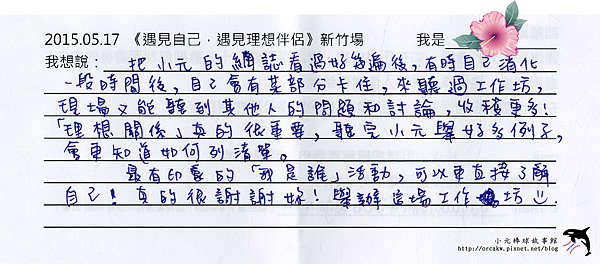 2015.05.17 《遇見自己．遇見理想伴侶》新竹場 我是
我想說： 把小元的網誌看過好多遍後，有時自己消化
一段時間後，自己會有某部分卡住，來聽過工作坊，
現場又能聽到其他人的問題和討論，收穫更多！
「理想關係」真的很重要，聽完小元舉好多例子，
會更知道如何列清單。
最有印象的「我是誰」活動，可以更直接了解
自己！真的很謝謝妳！舉辦這場工作坊
小元棒球故事館
http://orcakw.pixnet.net/blog